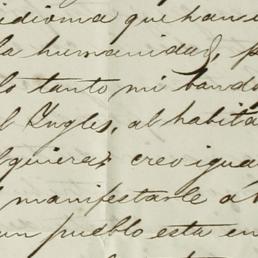 idioma que han
la humanidad, p
lo tanto mi band
l Ingles, al habita
quiera; creo igua
manifestarle á
un pueblo esta en